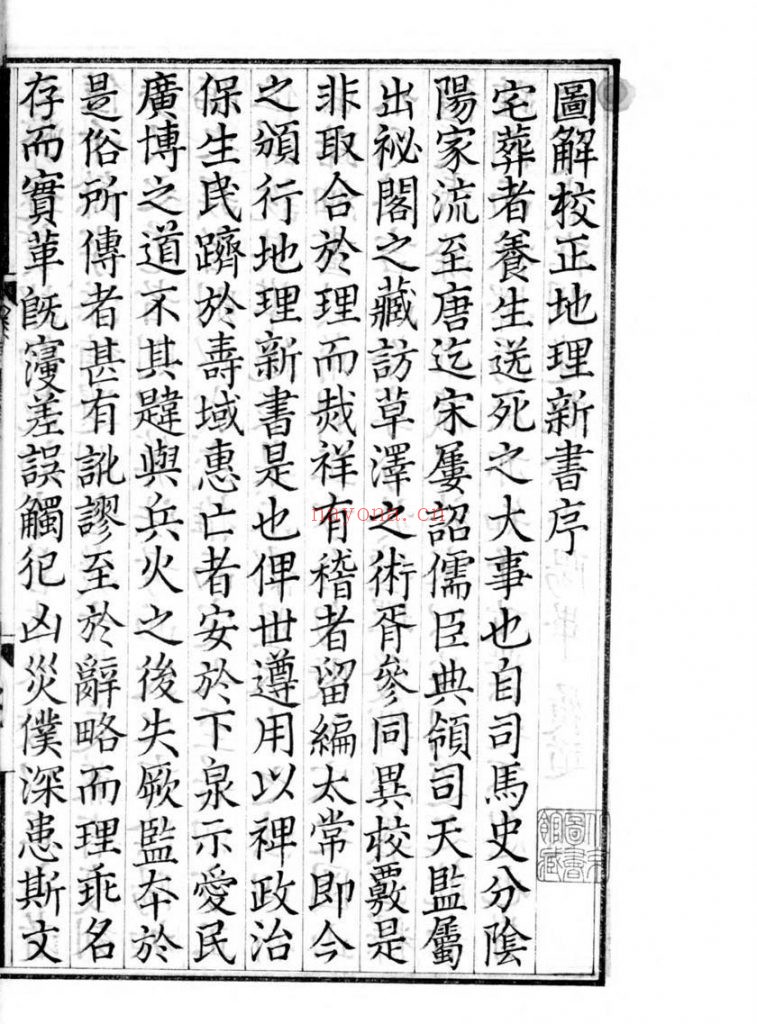 圖解校正地理新書序
宅葬者養生送死之大事也自司馬史分陰
陽家流至唐迄宋屢詔儒臣典領司天監屬
出祕閣之藏訪草澤之術胥參同異校覈是
非取合於理而烖祥有稽者留編太常即今
之頒行地理新書是也俾世遵用以禆政治
保生民躋於壽域惠亡者安於下泉示愛民
廣博之道不其韙與兵火之後失厥監夲於
是俗所傳者甚有訛謬至於辭略而理乖名
存而實革旣寖差誤觸犯凶災僕深患斯文
圖書
館藏
nayona.cn